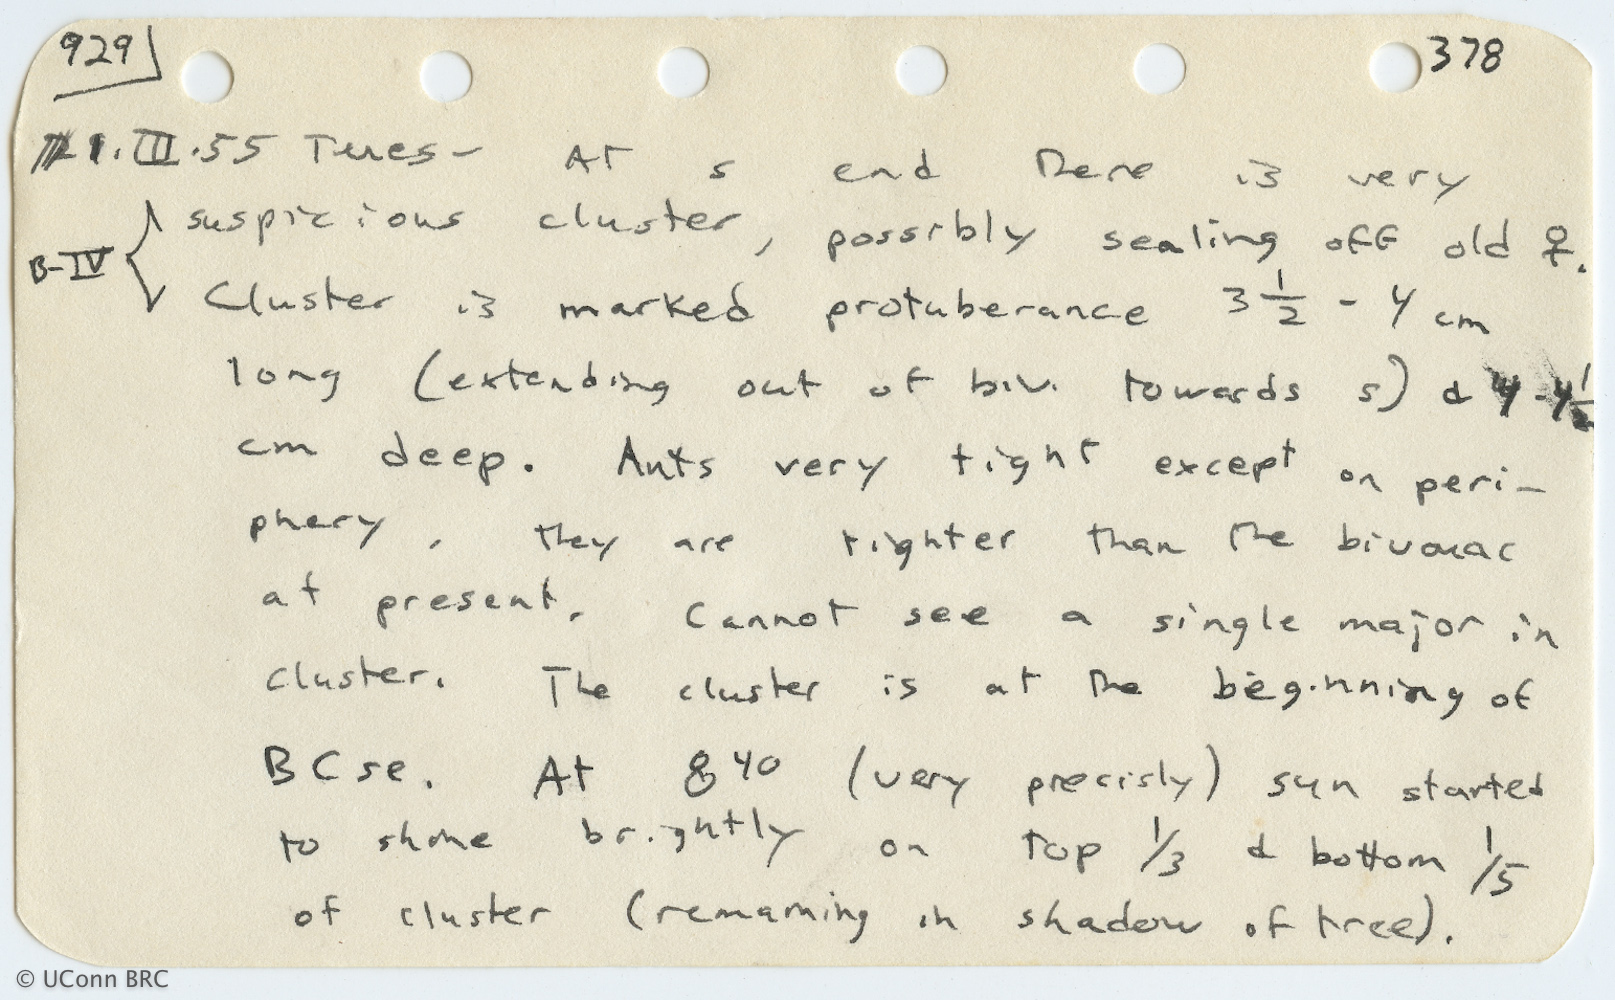 929 378
1.III.55 Tues- At s end there is very
suspicious cluster, possibly sealing off old ♀.
B-IV
Cluster is marked protuberance 3 1/2 - 4 cm
long (extending out of biv. towards s) & 4-4 1/2
cm deep. Ants very tight except on peri-
phery, they are tighter than the bivouac
at present. Cannot see a single major in
cluster. The cluster is at the beginning of
BCse. At 840 (very precisly) sun started
to shine brightly on top 1/3 & bottom 1/5
of cluster (remaining in shadow of tree).
© UConn BRC